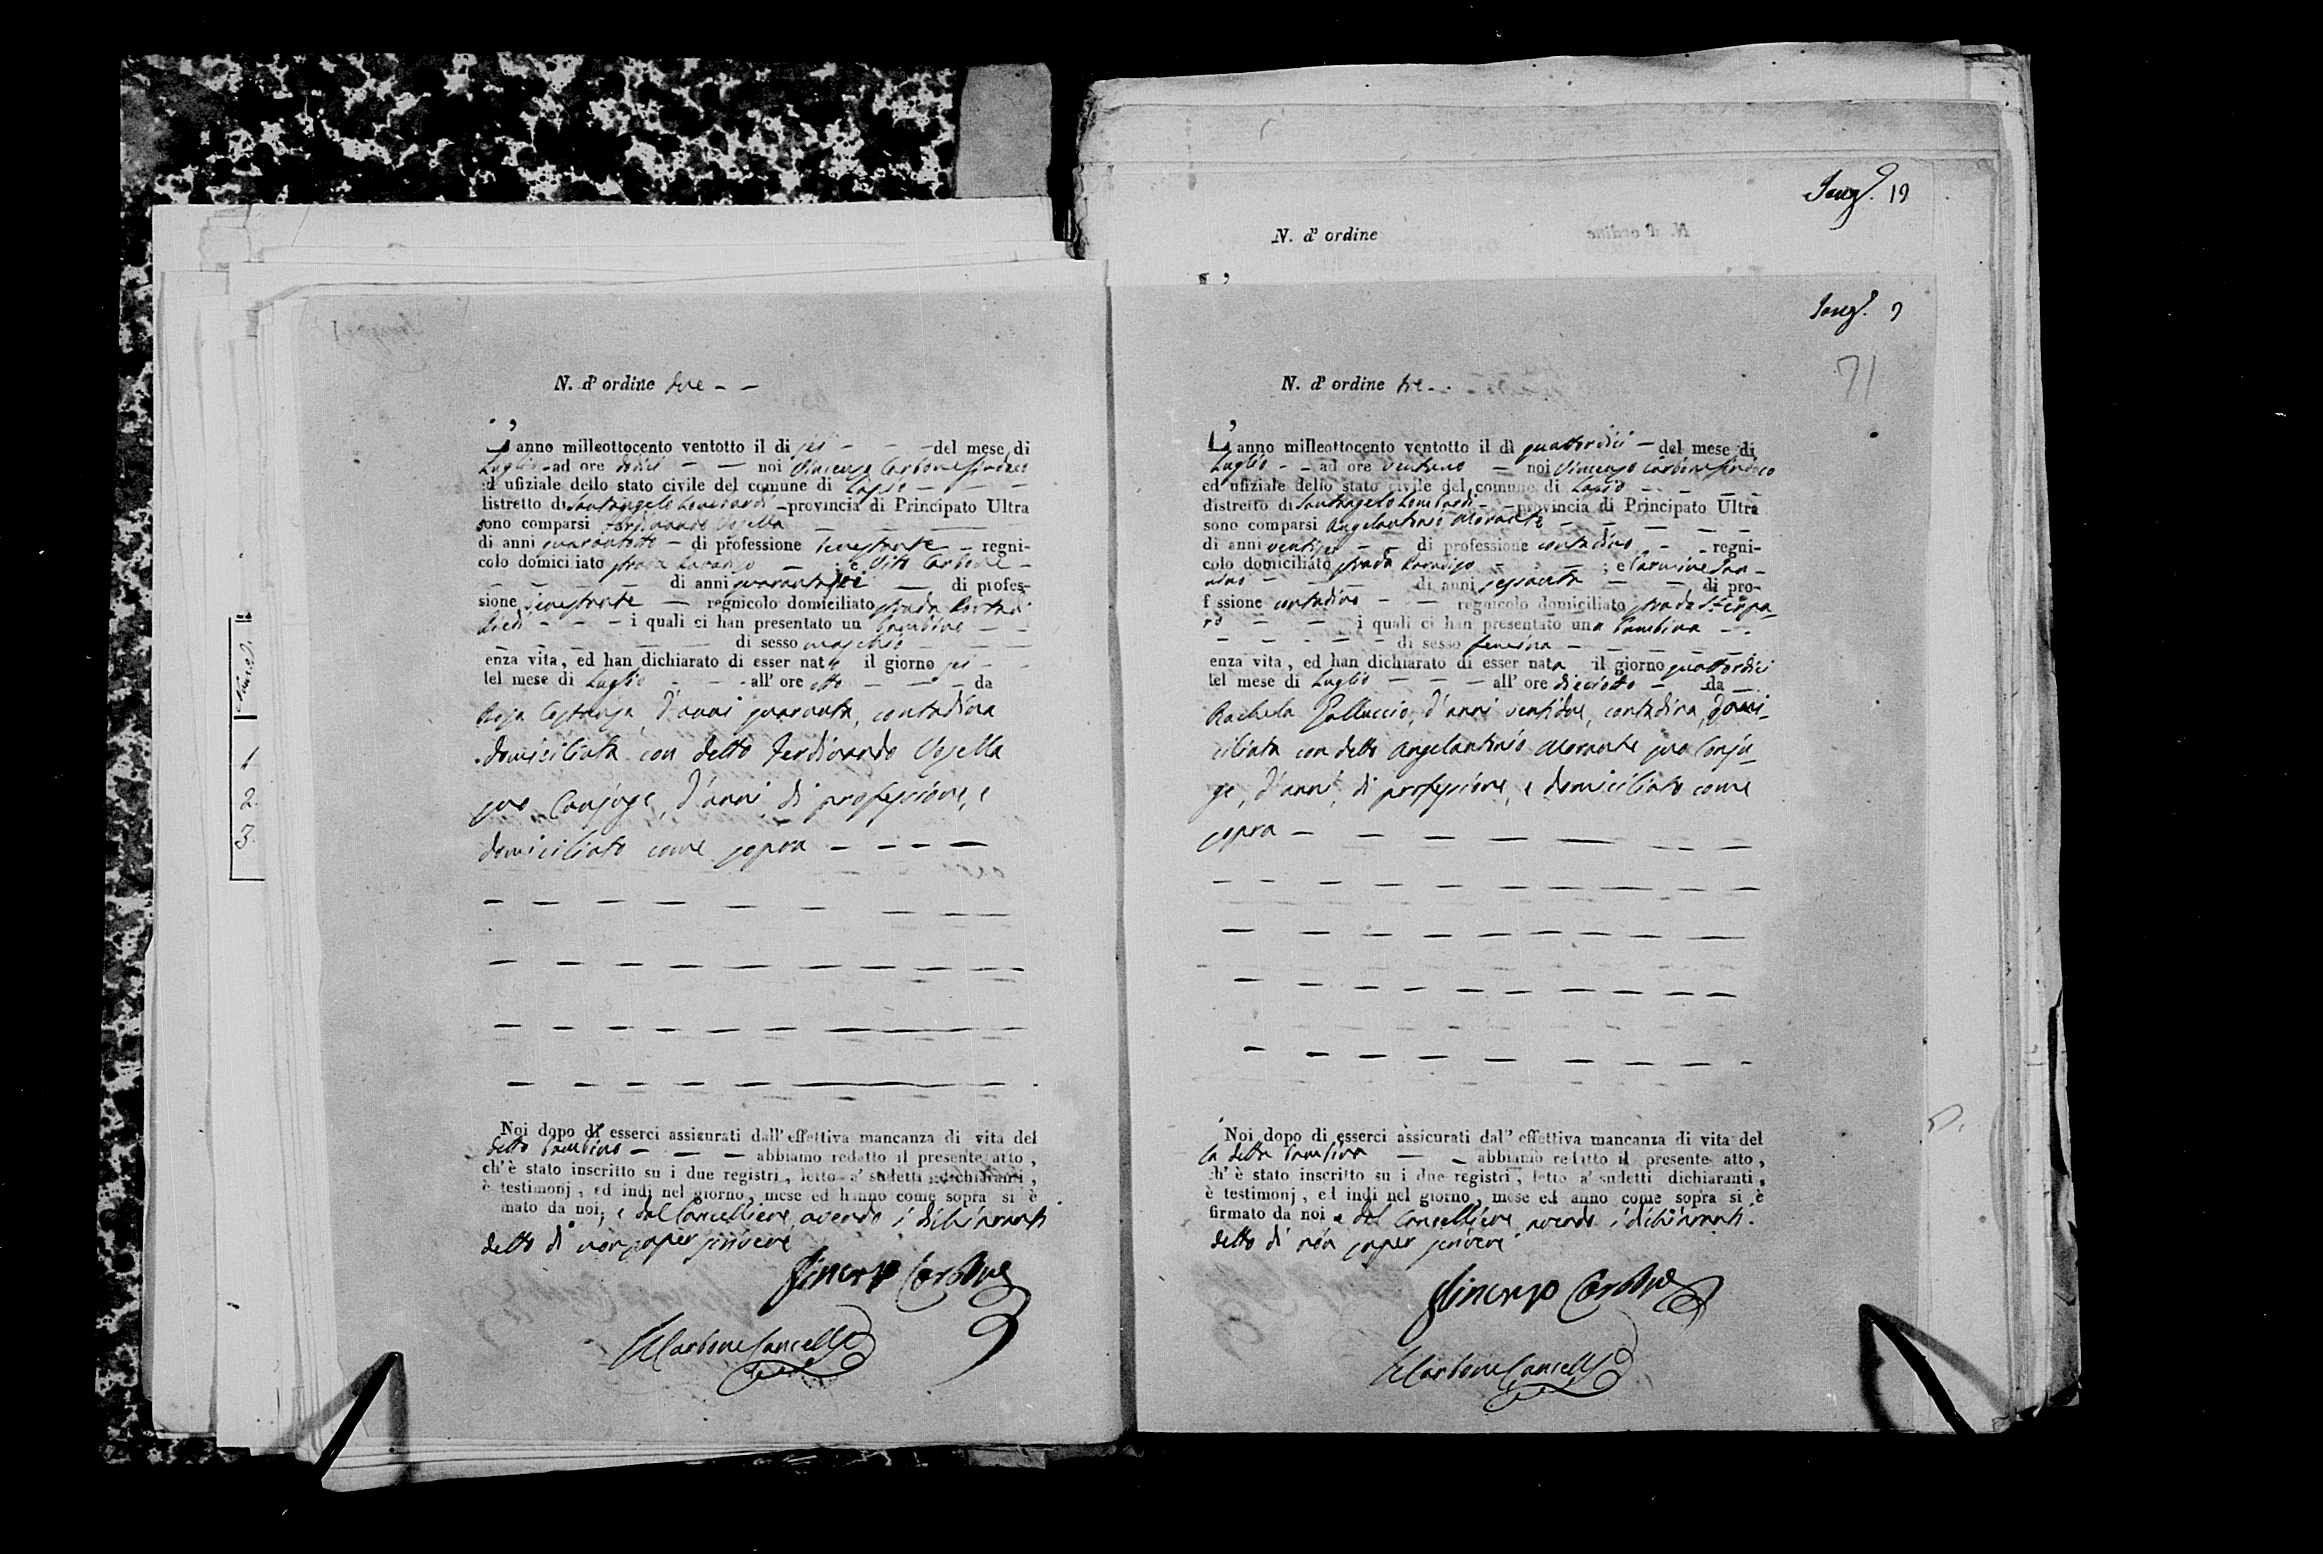 N. d' ordine due - -
L' anno milleottocento ventotto il di sei - - - del mese di
Luglio - ad ore dodici - - noi Vincenzo Carbone sindaco
ed ufiziale dello stato civile del comune di
distretto di Santangelo Lombardi - provincia di Principato Ultra
sono comparsi Ferdinando Vasella
di anni quarantotto - di professione benestante - regni-
colo domiciliato strada Paradiso - ; e Vito Carbone -
di anni quarantasei - di profes-
sione benestante - regnicolo domiciliato strada
- - - i quali ci han presentato un bambino - -
di sesso maschio - - -
senza vita, ed han dichiarato di esser nato il giorno sei - -
del mese di Luglio - - - all' ore otto - - - da
Rosa Castanza, d'anni quaranta, contadina
domiciliata con detto Ferdinando Vasella
suo Conjuge, d'anni, di professione, e
domiciliato come sopra - - - -
Noi dopo di esserci assicurati dall' effettiva mancanza di vita del
detto bambino - - - abbiamo redatto il presente atto,
ch' è stato inscritto su i due registri, letto a' sudetti dichiaranti,
è testimonj, ed indi nel giorno, mese ed hanno come sopra si è
mato da noi, e dal Cancelliere, avendo i dichiaranti
detto di non saper scrivere
Vincenzo Carbone
Carbone Cancell.
Numeri
1
2.
3.
N. d' ordine
Lung. 19
Lung. 9
71
N. d' ordine tre - .
L' anno milleottocento ventotto il di quattordici - del mese di
Luglio - - ad ore ventuno - noi Vincenzo Carbone sindaco
ed ufiziale dello stato civile del comune di
distretto di Santangelo Lombardi - - provincia di Principato Ultra
sono comparsi Angelantonio Morante - - - -
di anni ventisei - - di professione contadino - - regni-
colo domiciliato strada Paradiso - - - ; e Carmine
- - - di anni sessanta - - di pro-
fessione contadino - - regnicolo domiciliato strada
- - i quali ci han presentato una bambina - -
- - - - - di sesso femina - - - -
senza vita, ed han dichiarato di esser nata il giorno quattordici
del mese di Luglio - - - all' ore dieciotto - da -
Rachela Polluccio, d'anni ventidue, contadina, domi-
ciliata con detto Angelantonio Morante suo Conju-
ge, d'anni, di professione, e domiciliato come
sopra - - - - - - - -
Noi dopo di esserci assicurati dal' effettiva mancanza di vita del
la detta bambina - - abbiamo redatto il presente atto,
ch' è stato inscritto su i due registri, letto a' sudetti dichiaranti,
è testimonj, ed indi nel giorno, mese ed anno come sopra si è
firmato da noi e dal Cancelliere, avendo i dichiaranti
detto di non saper scrivere
Vincenzo Carbone
Carbone Cancell.